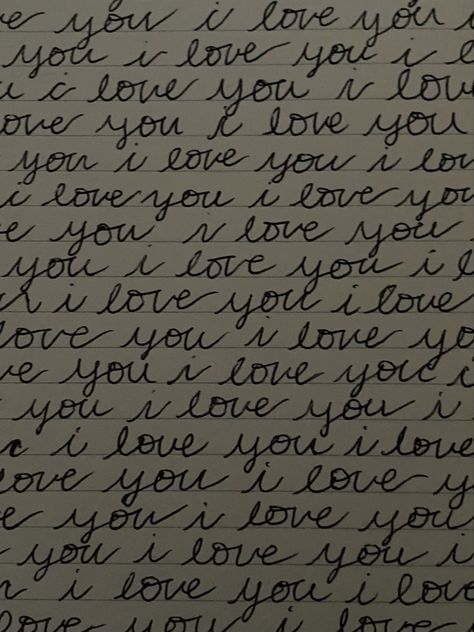 e you i love you
you i love you i
i love you i love
love you i love you
you i love you i lov
i love you i love you
e you i love you
you i love you i l
i love you i love
love you i love yo
ve you i love you i
you i love you i
i love you i love
love you i love y
e you i love you
you i love you i
i love you i love
love you i love